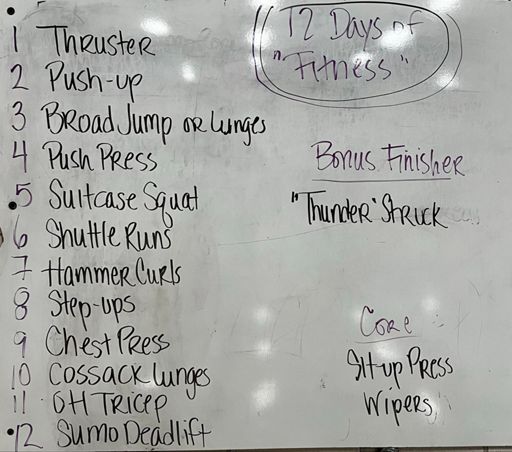 12 Days of
"Fitness"
1 Thruster
2 Push-up
3 Broad Jump or Lunges
4 Push Press
5 Suitcase Squat
6 Shuttle Runs
7 Hammer Curls
8 Step-ups
9 Chest Press
10 Cossack Lunges
11 OH Tricep
12 Sumo Deadlift
Bonus Finisher
"Thunder" Struck
Core
Sit-up Press
Wipers